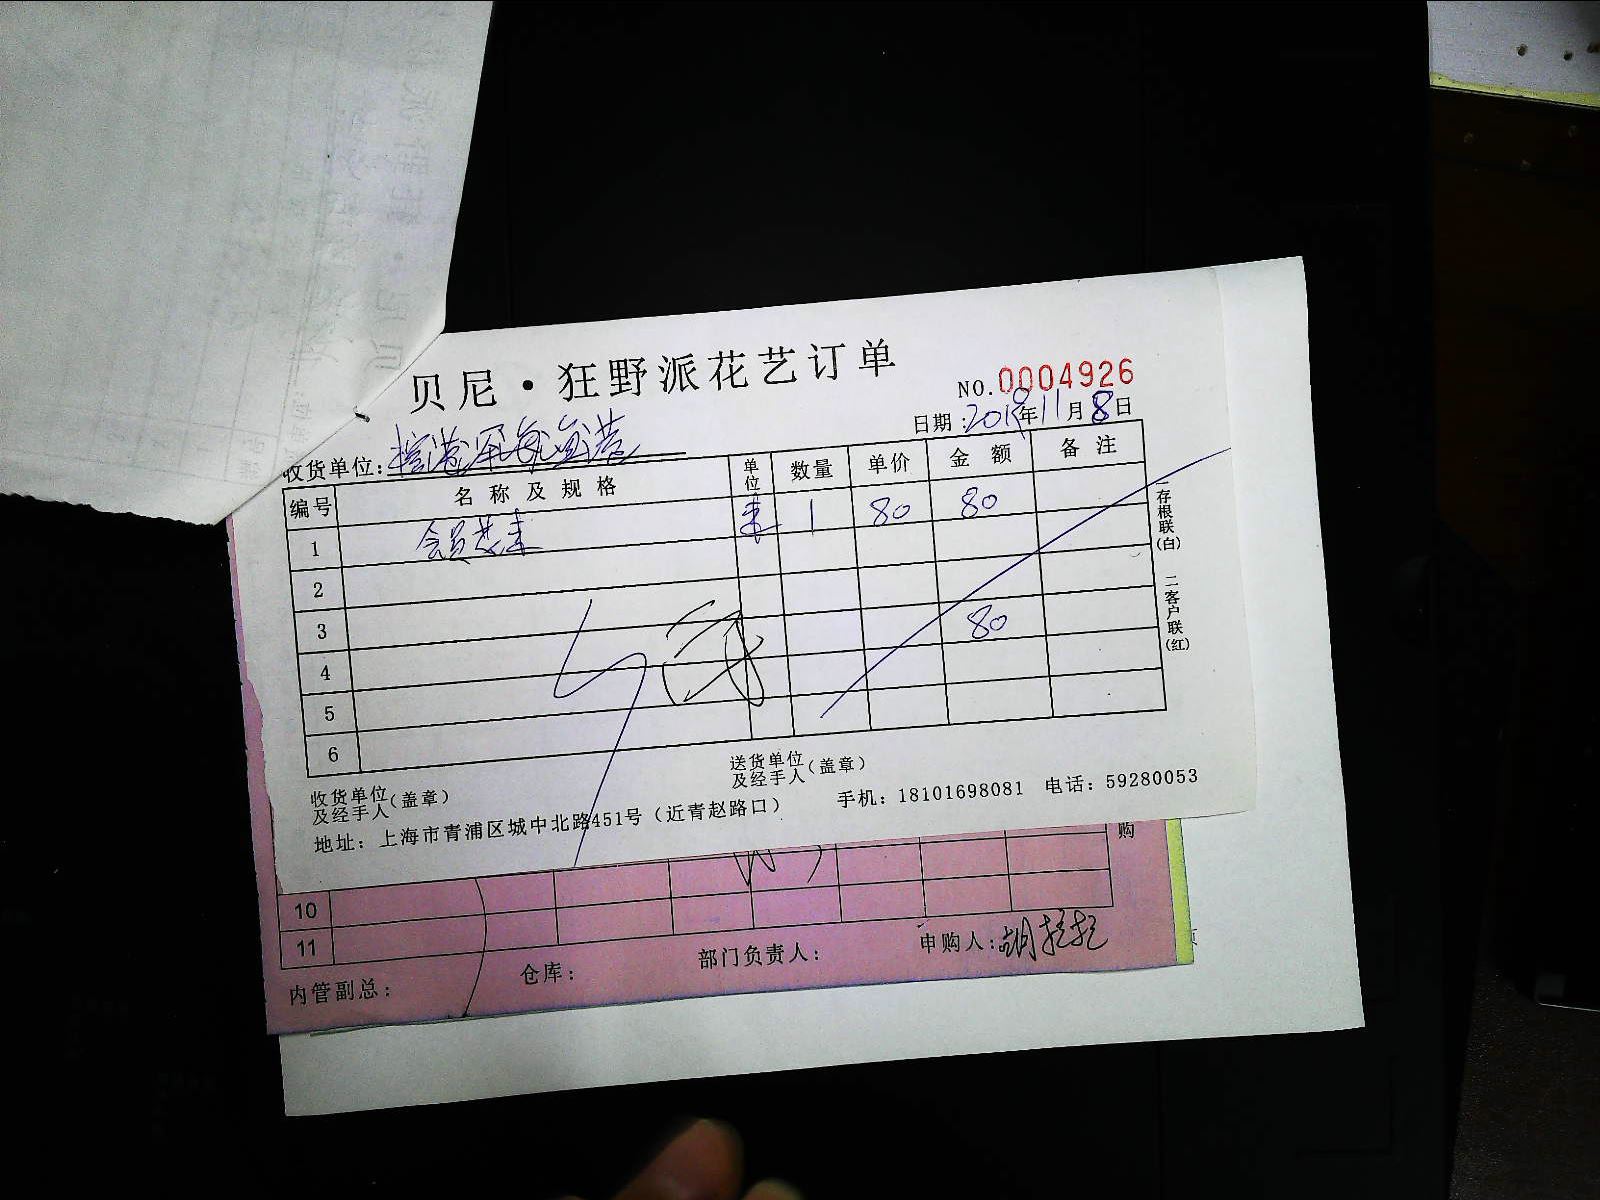 贝尼·狂野派花艺订单
NO.0004926
日期:2019年11月8日
收货单位:
编号 名称及规格 单位 数量 单价 金额 备注
1 会员花束 束 1 80 80
2
3 80
4
5
6
一存根联(白) 二客户联(红)
收货单位及经手人(盖章) 送货单位及经手人(盖章)
地址:上海市青浦区城中北路451号(近青赵路口) 手机:18101698081 电话:59280053
购
10
11
内管副总: 仓库: 部门负责人: 申购人:胡拉拉